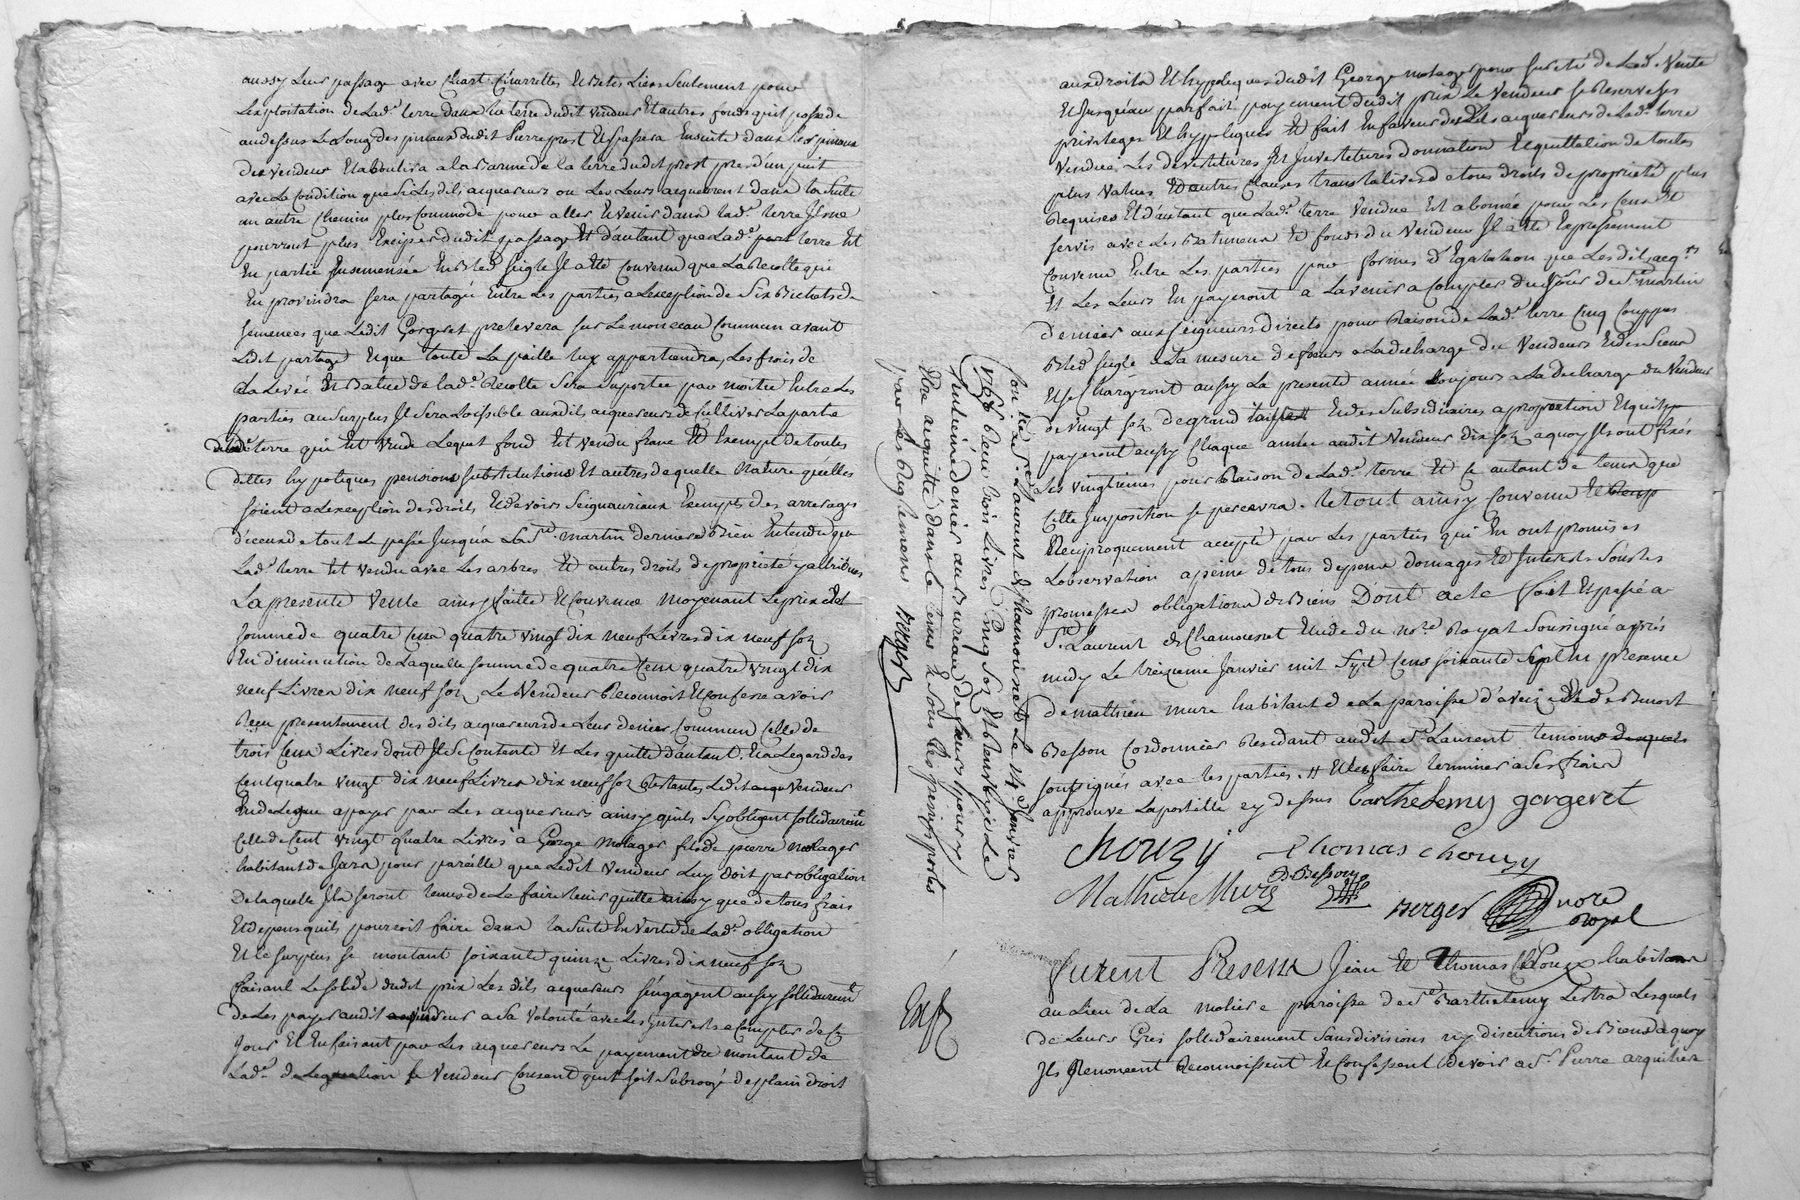 aussy Leur passage avec Chart Charrettes Et Betes Liées Seulement pour
Lexploitation de Lad.e terre dans la terre dudit vendeur Et autres fonds quil possede
audessus Le Long des pinaux dudit Pierre prost Et passera Ensuite dans Les pinaux
du vendeur Et aboutira a la de la terre dudit prost pres dun puit
avec La Condition que Si Lesdits acquereurs ou Les Leurs acquierent dans la Suite
un autre Chemin plus Commode pour aller Et venir dans lad.e terre Ils ne
pourront plus Exciper dudit passage Et d'autant que Lad.e terre Et
En partie Ensemensée En Bled Seigle Il a Eté Convenu que La Recolte qui
En proviendra Sera partagée Entre Les parties a Lexception de Six Bichets de
Semences que Ledit Gorgeret prelevera Sur Le monceau Commun avant
Ledit partage Et que toute La paille luy appartiendra, Les frais de
La Levée Et Batue de lad.e Recolte Sera Suportée par moitié Entre Les
parties au Surplus Il Sera Loissible auxdits acquereurs de Cultiver La parte
de lad.e terre qui Est vuide Lequel fond Est vendu franc Et Exempt de toutes
dettes hypoteques pensions Substitutions Et autres de quelle Nature quelles
soient a Lexception des droits Et devoirs Seigneuriaux Exempts des arrerages
d'iceux de tout Le passé Jusquà La S.t martin derniere Bien Entendu que
Lad.e terre Est vendu avec Les arbres Et autres droits de proprieté y attribués
La presente Vente ainsy faitte Et Convenue moyenant Le prix Et
Somme de quatre Cent quatre vingt dix neuf Livres dix neuf Sols
En diminution de Laquelle Somme de quatre Cent quatre vingt dix
neuf Livres dix neuf Sols Le Vendeur Reconnoit Et Confesse avoir
Reçu presentement des dits acquereurs de Leur denier Commun Celle de
trois Cent Livres dont Il Se Contente Et Les quitte d'autant, Et a Legard des
Cent quatre vingt dix neuf Livres dix neuf Sols Restantes Ledit vendeur
a payer par Les acquereurs ainsy quils Sy obligent Sollidairemt
Celle de Cent vingt quatre Livres a George Molager fils de pierre molager
habitant de Jara pour pareille que Ledit Vendeur Luy doit par obligation
De laquelle Ils Seront tenus de Le faire tenir quitte ainsy que de tous frais
Et depens quils pourroit faire dans la Suite En Vertu de Lad.e obligation
Et Le Surplus Se montant Soixante quinze Livres dix neuf Sols
faisant Le Solde dudit prix Les dits acquereurs s'engagent aussy Sollidairemt
De Les payer audit vendeur a Sa Volonté avec Les Interets a Compter de Ce
Jour Et En faisant par Les acquereurs Le payement du montant de
Lad.e Le Vendeur Consent quil Soit Subrogé de plain droit
aux droits Et hypoteques dudit George molager pour Sureté de Lad.e Vente
Et Jusquau parfait payement dudit prix Le Vendeur Se Reserve Ses
privileges Et hyppteques Et fait En faveur desdits acquereurs de Lad.e terre
Vendue Les devestitures Et Investitures donnation Et quittation de toutes
plus Values Et autres Clauses translatives de tous droits de proprieté plus
Requises Et d'autant que Lad.e terre Vendue Est abonnée pour Les Cens Et
Servis avec Les Batiments Et fonds du Vendeur Il a Eté Expressement
Convenu Entre Les parties par formes d'Egalation que Les dits acq.rs
Et Les Leurs En payeront a Lavenir a Compter du Jour de S.t martin
dernier aux Seigneurs directs pour Raison de Lad.e terre Cinq Couppes
Bled Seigle a La mesure de feurs a La decharge du Vendeur Et des Siens
Et Se Chargeront aussy La presente année toujours a La decharge du Vendeur
de vingt Sols de grand Et des Subsidiaires a proportion Et quils
payeront aussy Chaque année audit Vendeur dix Sols a quoy Ils ont fixés
Les vingtiemes pour Raison de Lad.e terre Et Ce autant de tems que
Cette Imposition Se percevra. Le tout ainsy Convenu Et
Reciproquement accepté par Les parties qui En ont promis Et
Lobservation a peine de tous depens domages Et Interets Sous Les
promesses obligations de Biens Dont acte fait Et passé a
S.t Laurent de Chamousset Etude du no.re Royal Soussigné après
midy Le treizieme Janvier mil Sept Cens Soixante Sept En presence
de mathieu mure habitant de La paroisse d'aveize Et de Benoit
Besson Cordonnier Residant audit St Laurent temoins
soussignés avec les parties. # Et Les faire terminer a Ses frais
approuvé La postille cy dessus Barthelemy gorgeret
Chouzy Thomas chouzy
Mathieu Mure B Besson
Berger no.re
Royal
Con.lé a S.t Laurent de Chamousset Le 14 Janvier
1767 Reçu trois Livres Cinq Sols Et Renvoyé Le
Centieme denier au Bureau de feurs pour y
Etre acquitté dans Le tems Et Sous Les peines portés
par Les Reglemens Berger
Furent Present Jean Et Thomas Chouzy habitans
au Lieu de La Moliere paroisse de St Barthelemy Lestra Lesquels
de Leurs Gré Sollidairement Sans divisions ny discutions de Biens a quoy
Ils Renoncent Reconnoissent Et Confessent Devoir a S.r Pierre arquilier
Exp